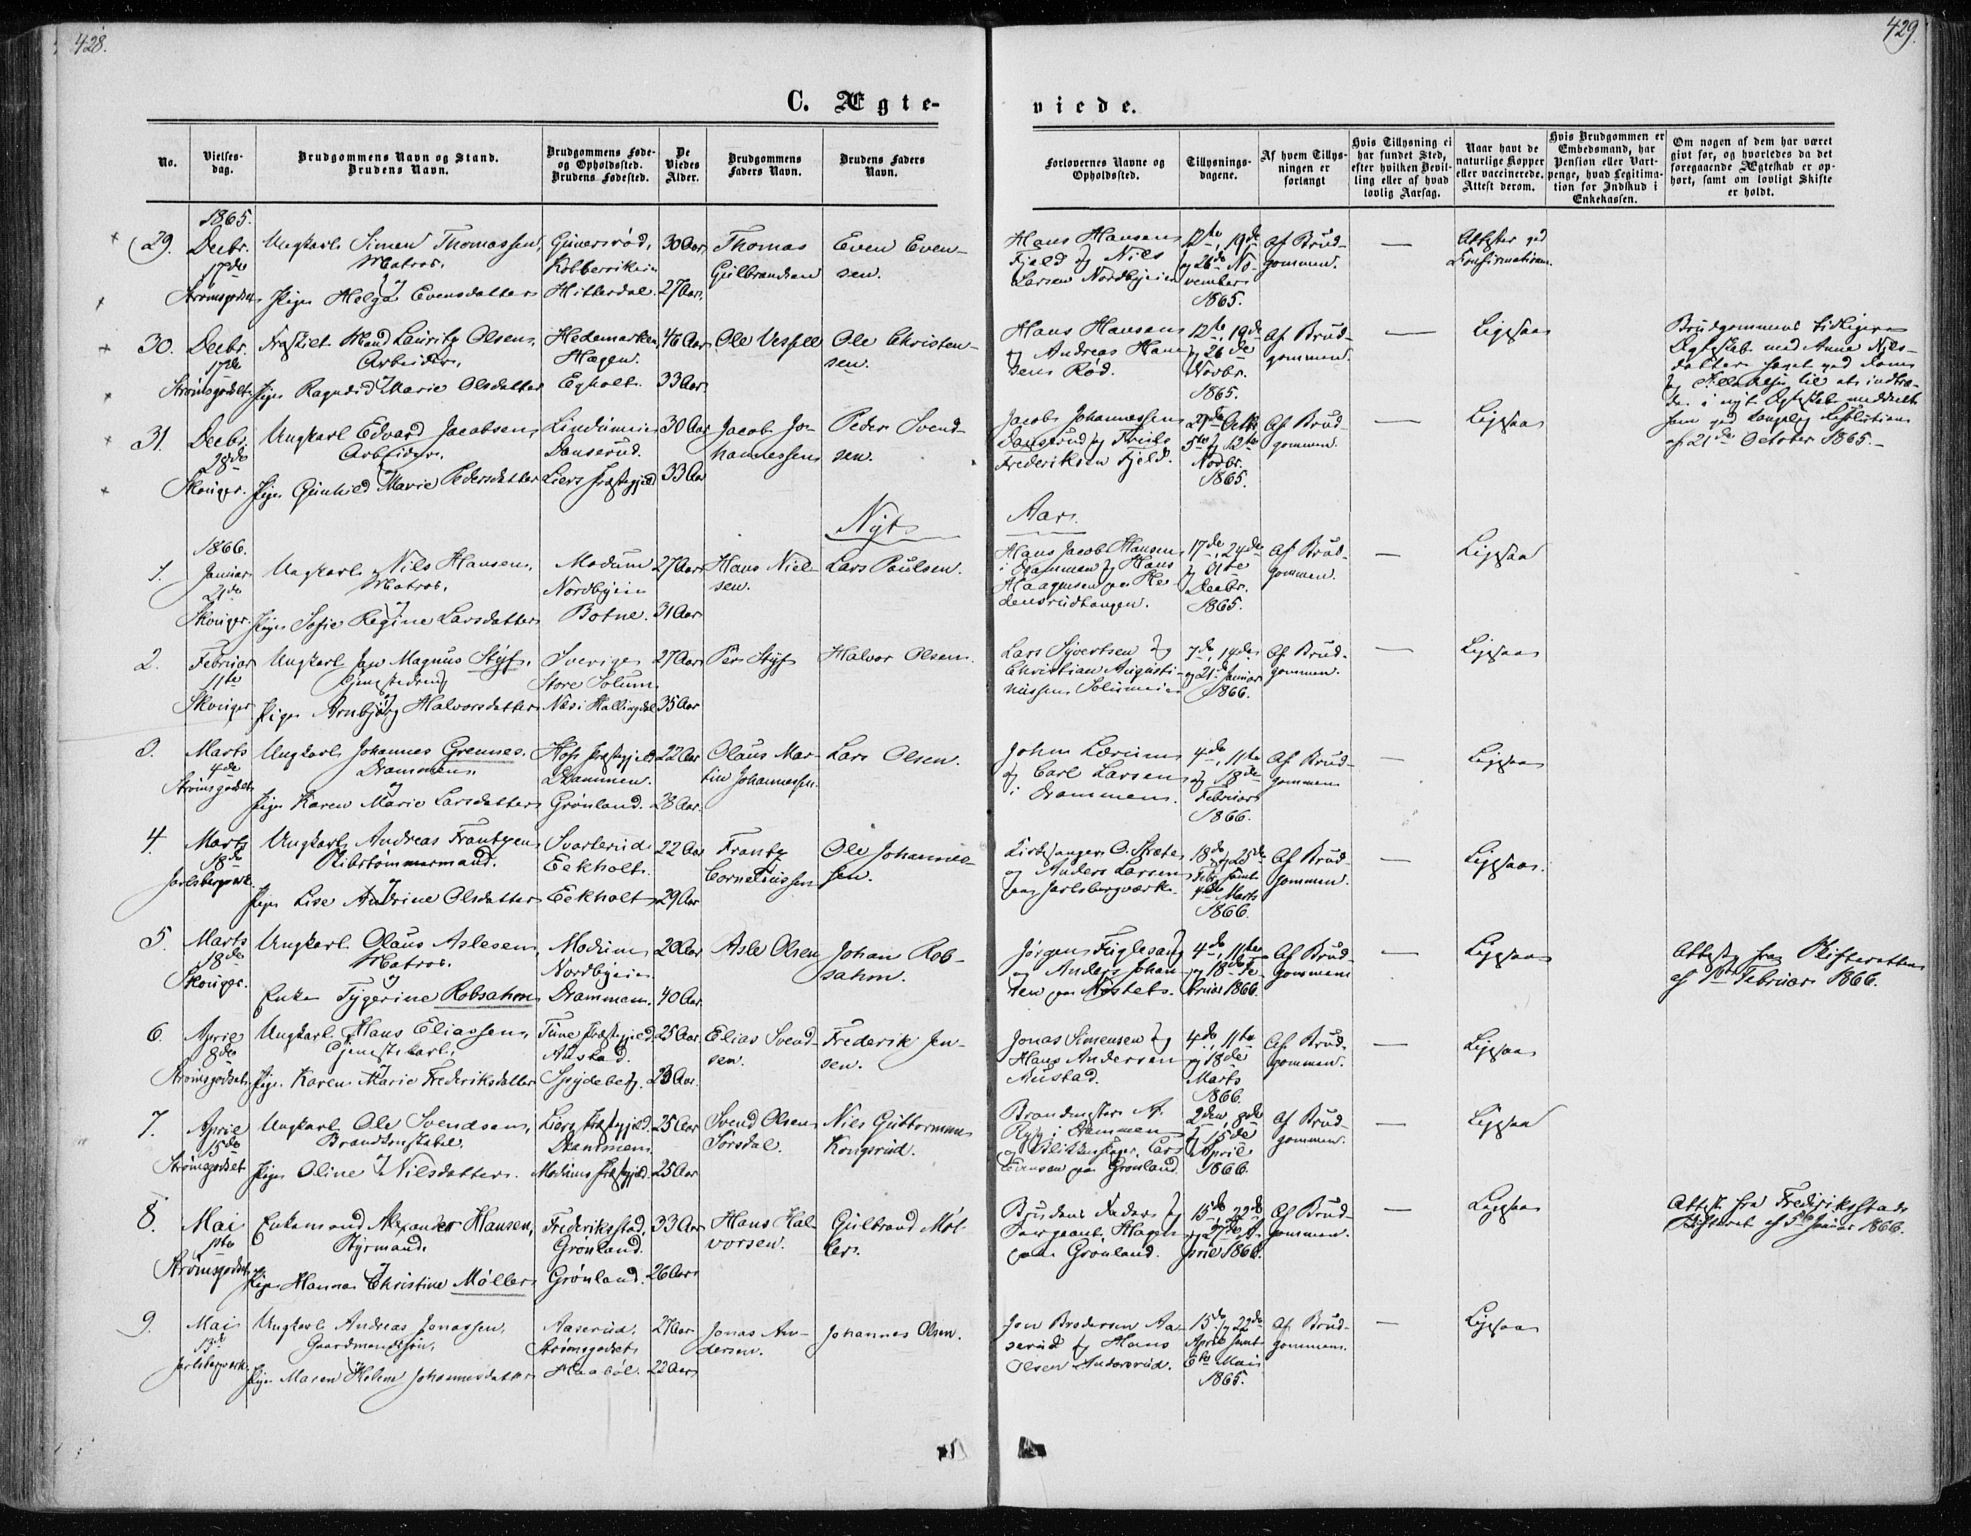 428.
429.
C. Ægte-
viede.
No.
Vielses-
dag.
Brudgommens Navn og Stand.
Brudens Navn.
Brudgommens Føde-
og Opholdssted.
Brudens Fødested.
De
Viedes
Alder.
Brudgommens
Faders Navn.
Brudens Faders
Navn.
Forlovernes Navne og
Opholdssted.
Tillysnings-
dagene.
Af hvem Tillys-
ningen er
forlangt
Hvis Tillysning ei
har fundet Sted,
efter hvilken Bevil-
ling eller af hvad
lovlig Aarsag.
Naar havt de
naturlige Kopper
eller vaccinerede.
Attest derom.
Hvis Brudgommen er
Embedsmand, har
Pension eller Vart-
penge, hvad Legitima-
tion for Indskud i
Enkekassen.
Om nogen af dem har været
givt før, og hvorledes da det
foregaaende Ægteskab er op-
hørt, samt om lovligt Skifte
er holdt.
29.
1865.
Decbr.
17de
Strømsgodset
Ungkarl Simen Thomassen,
Matros.
og
Pige Helga Evensdatter
Hitterdal.
30 Aar
27 Aar.
Thomas
Gulbrandsen
Even Even-
sen.
Hans Hansen
Fjeld og Nils
Larsen Nordbyeien
12te, 19de
og 26de No-
vember
1865.
Af Brud-
gommen.
—
Attester ved
Confirmationen.
30.
Decbr.
17de
Strømsgodset
Fraskilt Mand Lauritz Olsen,
Arbeider,
og
Pige Ragnhild Marie Olsdatter
Hedemarken
Hagen.
Egholt.
46 Aar
33 Aar.
Ole
Ole Christen-
sen.
Hans Hansen
og Andreas Han-
sen Rød.
12te, 19de
og 26de
Novbr.
1865.
Af Brud-
gommen.
—
Ligesaa
Brudgommens tidligere
Ægteskab med Anne Nils-
datter hævet ved Dom
og Tilladelse til at indtræ-
de i nyt Ægteskab meddelt
ham ved kongelig Resolution
af 21de October 1865.
31.
Decbr.
28de
Skouger.
Ungkarl Edvard Jacobsen,
Arbeider,
og
Pige Gunhild Marie Pedersdatter
Lindumeie
Danserud.
Liers Præstegjeld
30 Aar
33 Aar
Jacob Jo-
hannessen
Peder Svend-
sen.
Jacob Johannessen
Danserud og
Frederiksen Fjeld.
29de Octb
5te og 12te
Novbr.
1865.
Af Brud-
gommen.
—
Ligesaa
Nyt
Aar.
1.
1866.
Januar
21de
Skouger.
Ungkarl Nils Hansen,
Matros.
og
Pige Sofie Regine Larsdatter
Modum
Nordbyeie
Botne.
27 Aar
31 Aar
Hans Niel-
sen.
Lars Paulsen.
Hans Jacob Hansen
i Drammen og Hans
Haagensen paa He-
densrudtangen.
17de, 24de
og 31te
Decbr.
1865.
Af Brud-
gommen.
—
Ligesaa
2.
Februar
11te
Skouger
Ungkarl Jan Magnus Styf,
Tjenestedreng
og
Pige Arnbjørg Halvorsdatter
Sverige
Store Solum
Næs i Hallingdal
27 Aar
35 Aar
Per Styf
Halvor Olsen.
Lars Syvertsen og
Christian Augusti-
nussen Solumeie
7de, 14de
og 21de Januar
1866.
Af Brud-
gommen.
—
Ligesaa
3.
Marts
4de
Strømsgodset
Ungkarl Johannes Grennes,
Drammen
og
Pige Karen Marie Larsdatter
Hofs Præstegjeld
Drammen.
Grønland.
22 Aar
28 Aar.
Olaus Mar-
tin Johannessen.
Lars Olsen.
John Lærum
og Carl Larsen
i Drammen.
4de, 11te
og 18de
Februar
1866.
Af Brud-
gommen
—
Ligesaa
4.
Marts
18de
Jarlsbergværk.
Ungkarl Andreas Frantzen
Skibstømmermand.
og
Pige Lise Andrine Olsdatter
Svarterud
Eekholt.
Eekholt
22 Aar
29 Aar
Frantz
Corneliussen
Ole Johannes-
sen.
Kirkesanger O. Sætre
og Anders Larsen
paa Jarlsbergværk.
18de og 25de
Febr. samt
4de Marts
1866.
Af Brud-
gommen.
—
Ligesaa.
5.
Marts
18de
Skouger.
Ungkarl Olaus Aslesen,
Matros.
og
Enke Tygerine Robsahm
Modum
Nordbyeie
Drammen.
28 Aar
40 Aar.
Asle Olsen
Johan Rob-
sahm.
Jørgen Fuglesang
og Anders Johan-
sen paa Mostets.
4de, 11te
og 18de Fe-
bruar 1866.
Af Brud-
gommen
—
Ligesaa
Attest fra Skifteretten
af 1ste Februar 1866.
6.
April
8de
Strømsgodset
Ungkarl Hans Eliassen,
Tjenestekarl,
og
Pige Karen Marie Frederiksdatter
Tune Præstegjeld
Austad.
Spydeberg.
25 Aar
23 Aar.
Elias Svend-
sen.
Frederik Jen-
sen.
Jonas Simensen og
Hans Andersen
Austad.
4de, 11te
og 18de
Marts
1866.
Af Brud-
gommen.
—
Ligesaa
7.
April
15de
Strømsgodset
Ungkarl Ole Svendsen,
Brandkonstabel,
og
Pige Oline Nilsdatter.
Liers Præstegjeld
Drammen.
Modums Præstegjeld.
25 Aar
25 Aar
Svend Olsen
Sørsdal.
Niels Guttormsen
Kongsrud.
Brandmester A.
i Drammen
og Blikkenslager Lars
paa Grønland.
2den, 8de
og 15de
April
1866.
Af Brud-
gommen.
—
Ligesaa
8.
Mai
1ste
Strømsgodset
Enkemand Alexander Hansen,
Styrmand.
og
Pige Hanna Christine Møller
Frederikstad,
Grønland.
Grønland.
33 Aar
26 Aar
Hans Hal-
vorsen.
Gulbrand Møl-
ler.
Brudens Fader og
Sergeant Hagen
paa Grønland.
15de, 22de
og 29de A-
pril 1866.
Af Brud-
gommen.
—
Ligesaa
Attest fra Frederikstads
Skifteret af 5te Januar 1866.
9.
Mai
13de
Jarlsbergværk.
Ungkarl Andreas Jonassen,
Gaardmandssøn,
og
Pige Maren Helene Johannesdatter
Aaserud.
Strømsgodset
Haabøl.
27 Aar
22 Aar
Jonas An-
dersen.
Johannes Olsen.
Jon Brodersen Aa-
serud og Hans
Olsen Andorsrud.
15de og 22de
April samt
6te Mai
1865.
Af Brud-
gommen.
—
Ligesaa